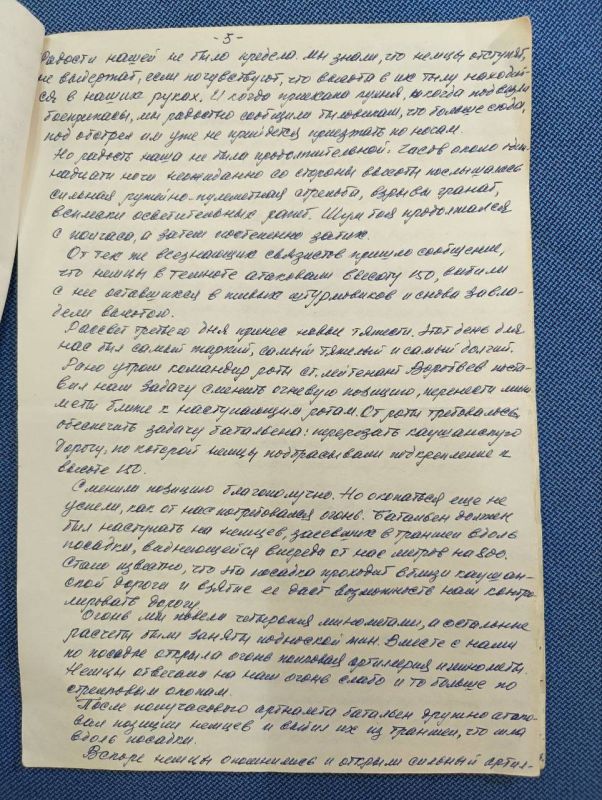 - 5 -
Радости нашей не было предела. Мы знали, что немцы отступят,
не выдержат, если почувствуют, что высота в их тылу находит-
ся в наших руках. И когда приехала кухня, и когда подвезли
боеприпасы, мы радостно сообщили тыловикам, что больше сюда,
под обстрел им уже не придется приезжать по ночам.
Но радость наша не была продолжительной. Часов около один-
надцати ночи неожиданно со стороны высоты послышалась
сильная ружейно-пулеметная стрельба, взрывы гранат,
вспышки осветительных ракет. Шум боя продолжался
с полчаса, а затем постепенно затих.
От тех же всезнающих связистов пришло сообщение,
что немцы в темноте атаковали высоту 150, выбили
с нее оставшихся в живых штурмовиков и снова завла-
дели высотою.
Рассвет третьего дня принес новые тяжести. Этот день для
нас был самый жаркий, самый тяжелый и самый долгий.
Рано утром командир роты ст. лейтенант Доротеев поста-
вил нам задачу сменить огневую позицию, перенести мино-
меты ближе к наступающим ротам. От роты требовалось
обеспечить задачу батальена: перерезать каушанскую
дорогу, по которой немцы подбрасывали подкрепление к
высоте 150.
Сменили позицию благополучно. Но окопаться еще не
успели, как от нас потребовался огонь. Батальен должен
был наступать на немцев, засевших в траншеи вдоль
посадки, виднеющейся впереди от нас метров на 800.
Стало известно, что эта посадка проходит вблизи каушан-
ской дороги и взятие ее дает возможность нам контро-
лировать дорогу.
Огонь мы повели четырьмя минометами, а остальные
расчеты были заняты подноской мин. Вместе с нами
по посадке открыла огонь полковая артиллерия и минометы.
Немцы отвечали на наш огонь слабо и то больше по
стрелковым окопам.
После получасового артналета батальен дружно атако-
вал позиции немцев и выбил их из траншеи, что шла
вдоль посадки.
Вскоре немцы опомнились и открыли сильный артил-